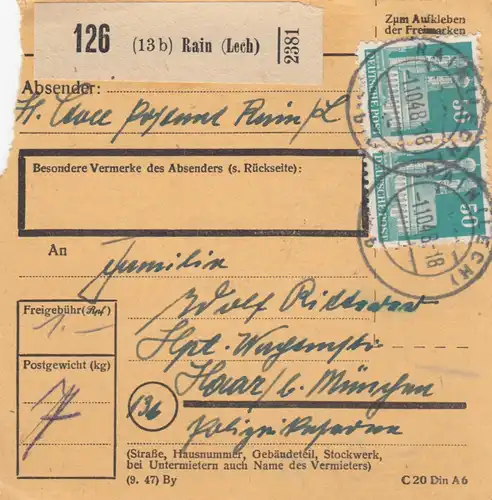 126 (13b) Rain (Lech) 2381
Zum Aufkleben
der Freimarken
Absender:
Postamt Rain/L
50 DEUTSCHE POST
50 DEUTSCHE POST
RAIN (LECH)
-1.10.48.-18
RAIN (LECH)
-1.10.48.-18
Besondere Vermerke des Absenders (s. Rückseite):
An
Familie
Freigebühr (Rpf)
1.-
Hpt.
Postgewicht (kg)
7
Haar / b. München
13b
(Straße, Hausnummer, Gebäudeteil, Stockwerk,
bei Untermietern auch Name des Vermieters)
(9. 47) By
C 20 Din A 6